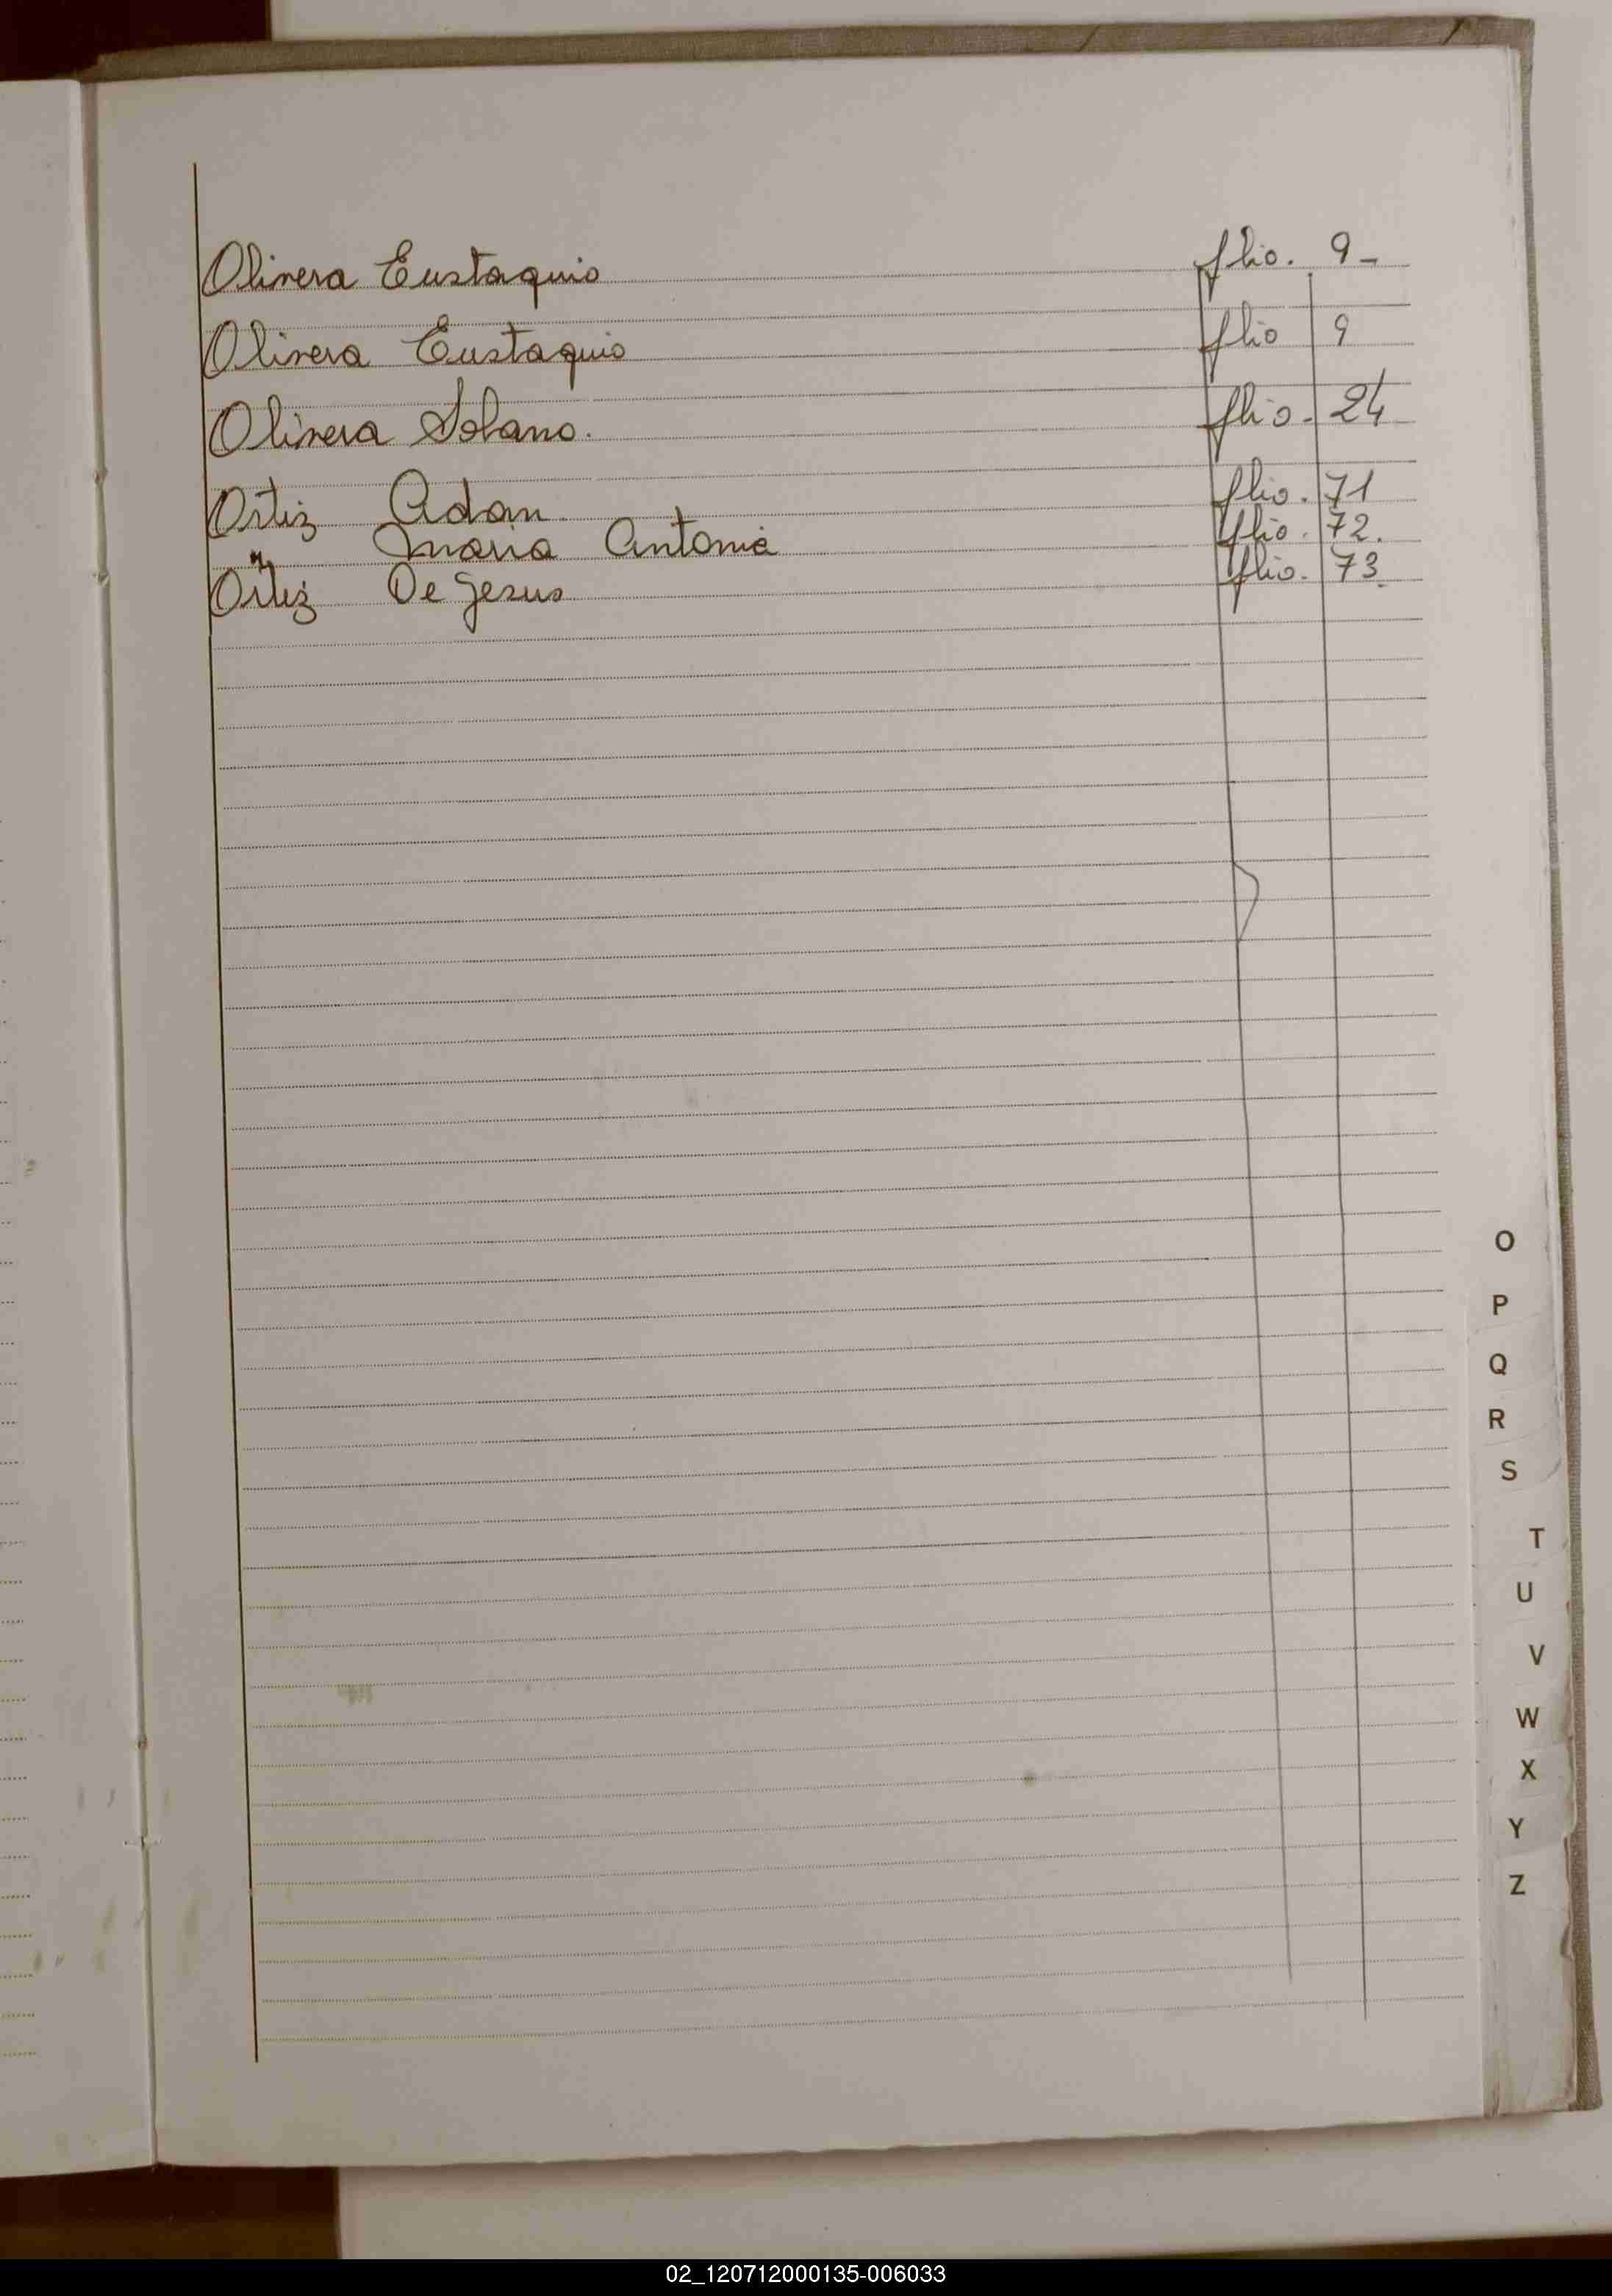 Olivera Eustaquio flio. 9-
Olivera Eustaquio flio 9
Olivera Solano. flio. 24
Ortiz Adan flio. 71
" Maria Antonia flio. 72.
Ortiz De Jesus flio. 73.
O
P
Q
R
S
T
U
V
W
X
Y
Z
02_120712000135-006033